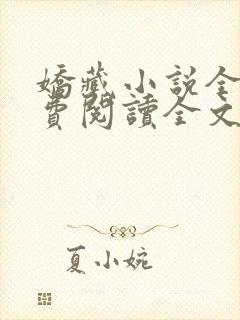 嬌藏小說全
費閱讀全文
夏小婉